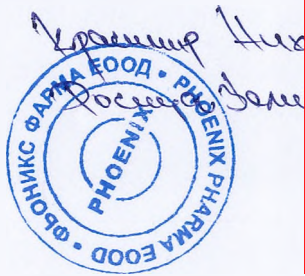 Красимир Них
Росица Вели
ФЬОНИКС ФАРМА ЕООД • PHOENIX PHARMA EOOD •
PHOENIX